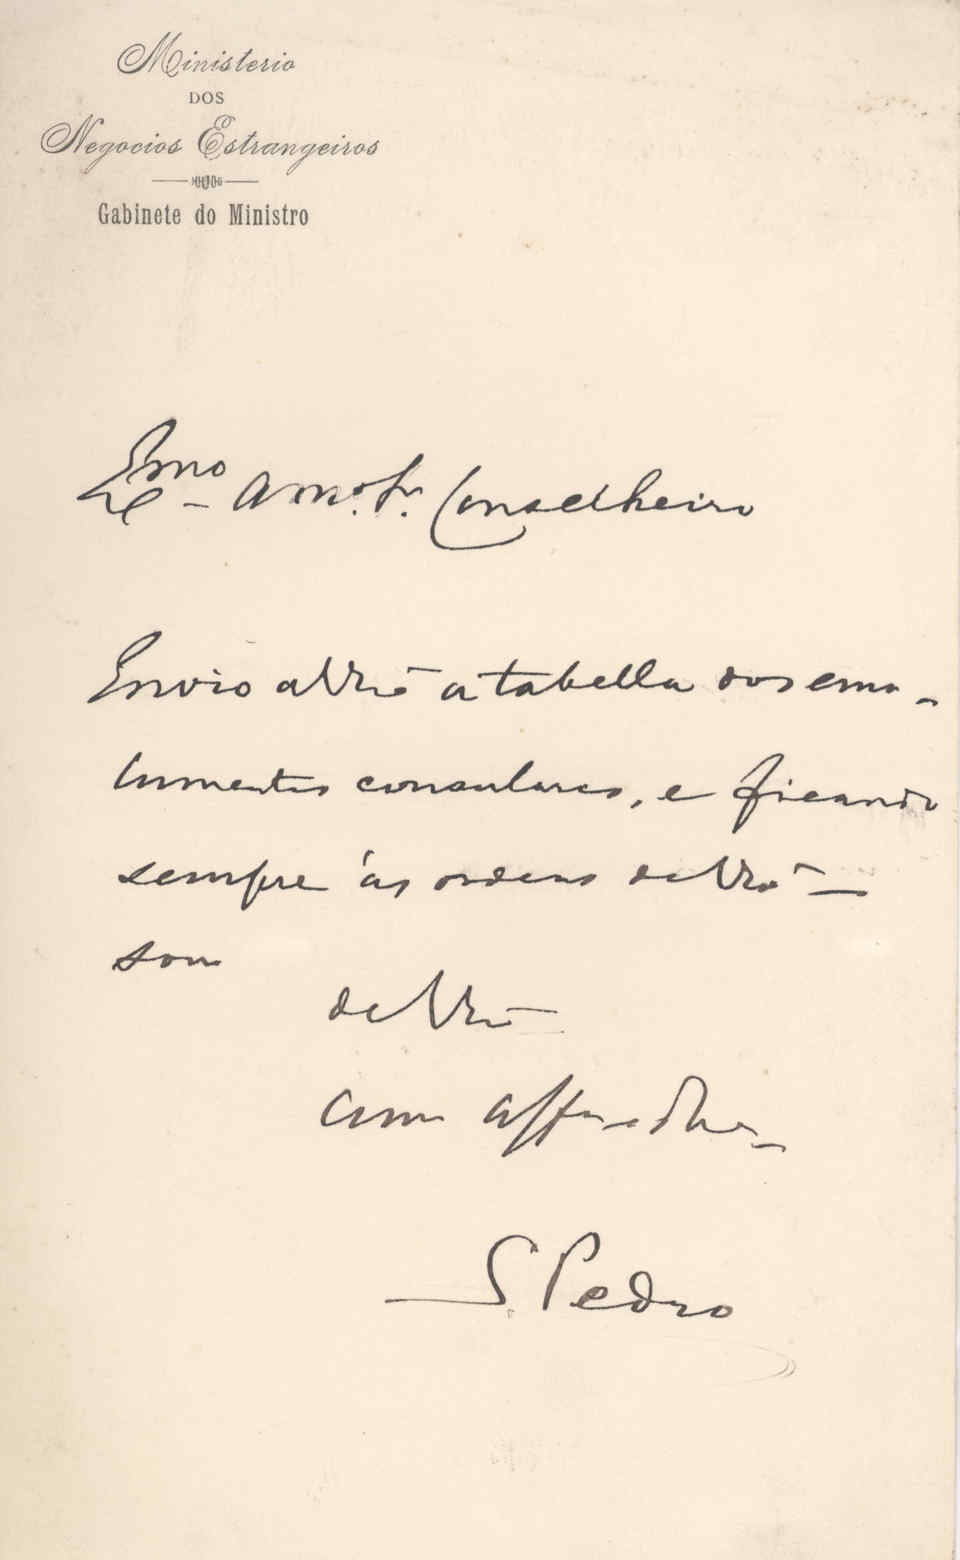 Ministerio
DOS
Negocios Estrangeiros
Gabinete do Ministro
Exmo Amo. Sr. Conselheiro
Envio a V Exª a tabella dos emo-
lumentos consulares, e ficando
sempre ás ordens de V Exª
sou
de V Exª
am
S. Pedro